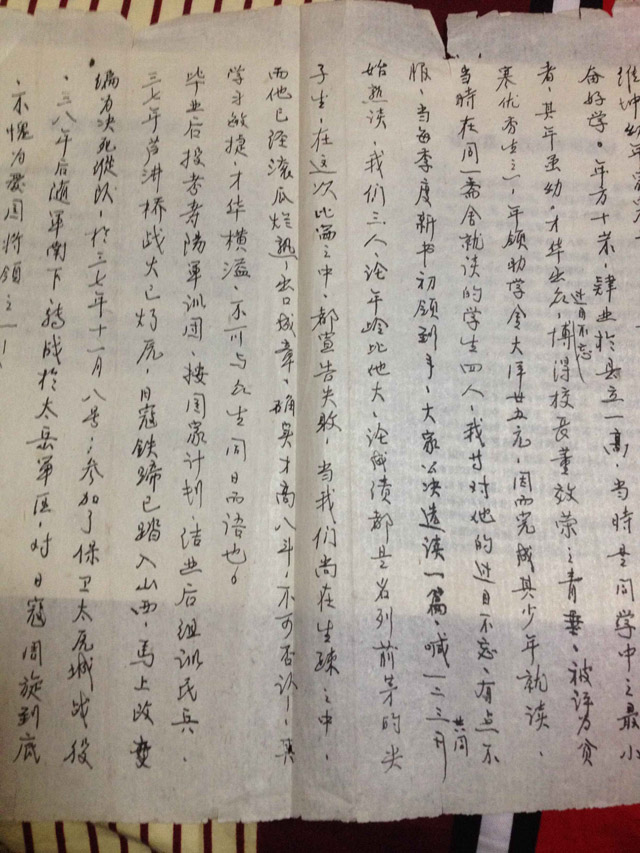 维坤幼年
奋好学。年方十岁,肄业於县立一高,当時是同学中之最小
者,其年虽幼,才华出众,过目不忘,博得校长董效荣之青垂、被评为贫
寒优秀生之一,年领助学金大洋廿五元,因而完成其少年就读、
当時在同一斋舍就读的学生四人,我甘对他的过目不忘、有点不
服,当每季度新书初领到手,大家公决选读一篇,喊一二三共同开
始熟读,我们三人、论年龄比他大、论成绩都是名列前茅的尖
子生,在这次比海之中、都宣告失败,当我们尚在生疎之中,
而他已经滚瓜烂熟,出口成章、确具才高八斗,不可否认,真
学习敏捷,才华横溢,不可与凡生同日而语也。
毕业后投考寿陽軍训团,按国家计划,结业后组训民兵、
三七年芦沟桥战火已灼広,日寇鉄蹄已踏入山西,馬上改变
编为决死纵队,於三七年十一月八号,参加了保卫太原城战役
、三八年后随軍南下,转战於太岳軍区,对日寇周旋到底
、不愧为爱国将领之一!